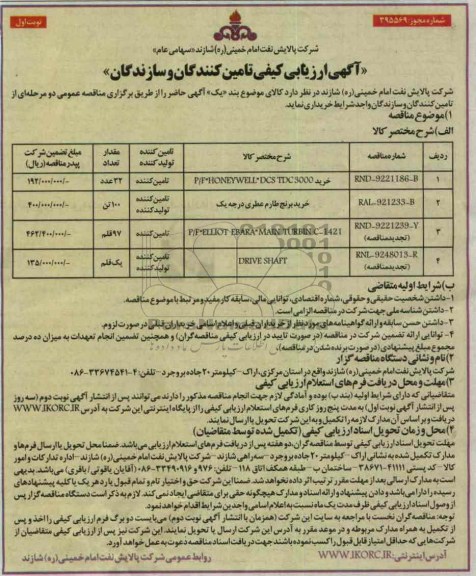 شماره مجوز: ۳۹۵۵۶۹
نوبت اول
شرکت پالایش نفت امام خمینی(ره) شازند «سهامی عام»
«آگهی ارزیابی کیفی تامین کنندگان و سازندگان»
شرکت پالایش نفت امام خمینی (ره) شازند در نظر دارد کالای موضوع بند «یک» آگهی حاضر را از طریق برگزاری مناقصه عمومی دو مرحله‌ای از
تامین کنندگان و سازندگان واجد شرایط خریداری نماید.
۱) موضوع مناقصه
الف) شرح مختصر کالا
ردیف شماره مناقصه شرح مختصر کالا تامین کننده تولید کننده مقدار تعداد مبلغ تضمین شرکت در مناقصه (ریال)
۱ RND-9221186-B خرید P/F"HONEYWELL" DCS TDC 3000 تامین کننده ۳۲ عدد ۱۹۲/۰۰۰/۰۰۰/-
۲ RAL-921233-B خرید برنج طارم عطری درجه یک تامین کننده تولید کننده ۱۰۰ تن ۴۰۰/۰۰۰/۰۰۰/-
۳ RND-9221239-Y (تجدید مناقصه) P/F"ELLIOT EBARA" MAIN TURBIN C-1421 تامین کننده ۹۷ قلم ۴۶۲/۴۰۰/۰۰۰/-
۴ RNL-9248013-R (تجدید مناقصه) DRIVE SHAFT تامین کننده تولید کننده یک قلم ۱۳۵/۰۰۰/۰۰۰/-
ب) شرایط اولیه متقاضی
۱- داشتن شخصیت حقیقی و حقوقی، شماره اقتصادی، توانایی مالی، سابقه کار مفید و مرتبط با موضوع مناقصه.
۲- داشتن شناسه ملی جهت شرکت در مناقصه الزامی است.
۳- داشتن حسن سابقه و ارائه گواهینامه‌های مورد نظر از خریداران قبلی و اعلام اسامی خریداران قبلی در صورت لزوم.
۴- توانایی ارائه تضمین شرکت در مناقصه (در صورت تایید در ارزیابی کیفی مناقصه گران) و همچنین تضمین انجام تعهدات به میزان ده درصد
مجموع مبلغ پیشنهادی (در صورت برنده شدن در مناقصه).
۲) نام و نشانی دستگاه مناقصه گزار
شرکت پالایش نفت امام خمینی (ره) شازند واقع در استان مرکزی، اراک - کیلومتر ۲۰ جاده بروجرد - تلفن: ۴-۳۳۶۷۴۵۴۱-۰۸۶
۳) مهلت و محل دریافت فرم‌های استعلام ارزیابی کیفی
متقاضیانی که دارای شرایط اولیه (بند ب) بوده و آمادگی لازم جهت انجام مناقصه مذکور را دارند می توانند پس از انتشار آگهی نوبت دوم (سه روز
پس از انتشار آگهی نوبت اول) به مدت پنج روز کاری فرم‌های استعلام ارزیابی کیفی را از پایگاه اینترنتی این شرکت به آدرس WWW.IKORC.IR
دریافت و بر اساس آن مدارک لازمه را تکمیل و به این شرکت تحویل یا ارسال نمایند.
۴) محل و زمان تحویل اسناد ارزیابی کیفی (تکمیل شده توسط متقاضیان)
مهلت تحویل اسناد ارزیابی کیفی توسط مناقصه گران، دو هفته پس از دریافت فرم‌های استعلام ارزیابی می‌باشد. ضمنا محل تحویل یا ارسال فرم‌ها و
مدارک تکمیل شده به نشانی اراک - کیلومتر ۲۰ جاده بروجرد - سه راهی شازند - شرکت پالایش نفت امام خمینی (ره) شازند - اداره تدارکات و امور
کالا - کد پستی ۴۱۱۱۱-۳۸۶۷۱ - ساختمان ب - طبقه همکف اتاق ۱۱۸ - تلفن: ۹۷۶ و ۳۳۴۹۰۹۱۶-۰۸۶ (آقایان یاقوتی / باقری) می‌باشد. بدیهی
است به مدارک ارسالی بعد از مهلت مقرر ترتیب اثر داده نخواهد شد. ضمنا این شرکت حق و اختیار تام و تمام قبول یا رد هر یک یا کلیه پیشنهادهای
رسیده را دارا می‌باشد و دادن پیشنهاد و ارائه اسناد و مدارک هیچگونه حقی برای متقاضی ایجاد نمی کند. لازم به ذکر است دستگاه مناقصه گزار پس
از وصول اسناد ارزیابی کیفی ظرف مدت یک ماه نسبت به اعلام اسامی واجدین شرایط اقدام خواهد نمود.
توجه: مناقصه گران نخست با مراجعه به سایت این شرکت (همزمان با انتشار آگهی نوبت دوم) می‌بایست دو برگ فرم ارزیابی کیفی را اخذ و پس
از تکمیل به همراه مدارک مربوطه و در موعد مقرر به آدرس این شرکت ارسال یا تحویل نمایند. این شرکت نیز پس از ارزیابی کیفی متقاضیان از
شرکت‌هایی که حداقل امتیاز قابل قبول را کسب نموده باشند جهت دریافت اسناد مناقصه دعوت به عمل خواهد آورد.
آدرس اینترنتی: WWW.IKORC.IR
روابط عمومی شرکت پالایش نفت امام خمینی (ره) شازند